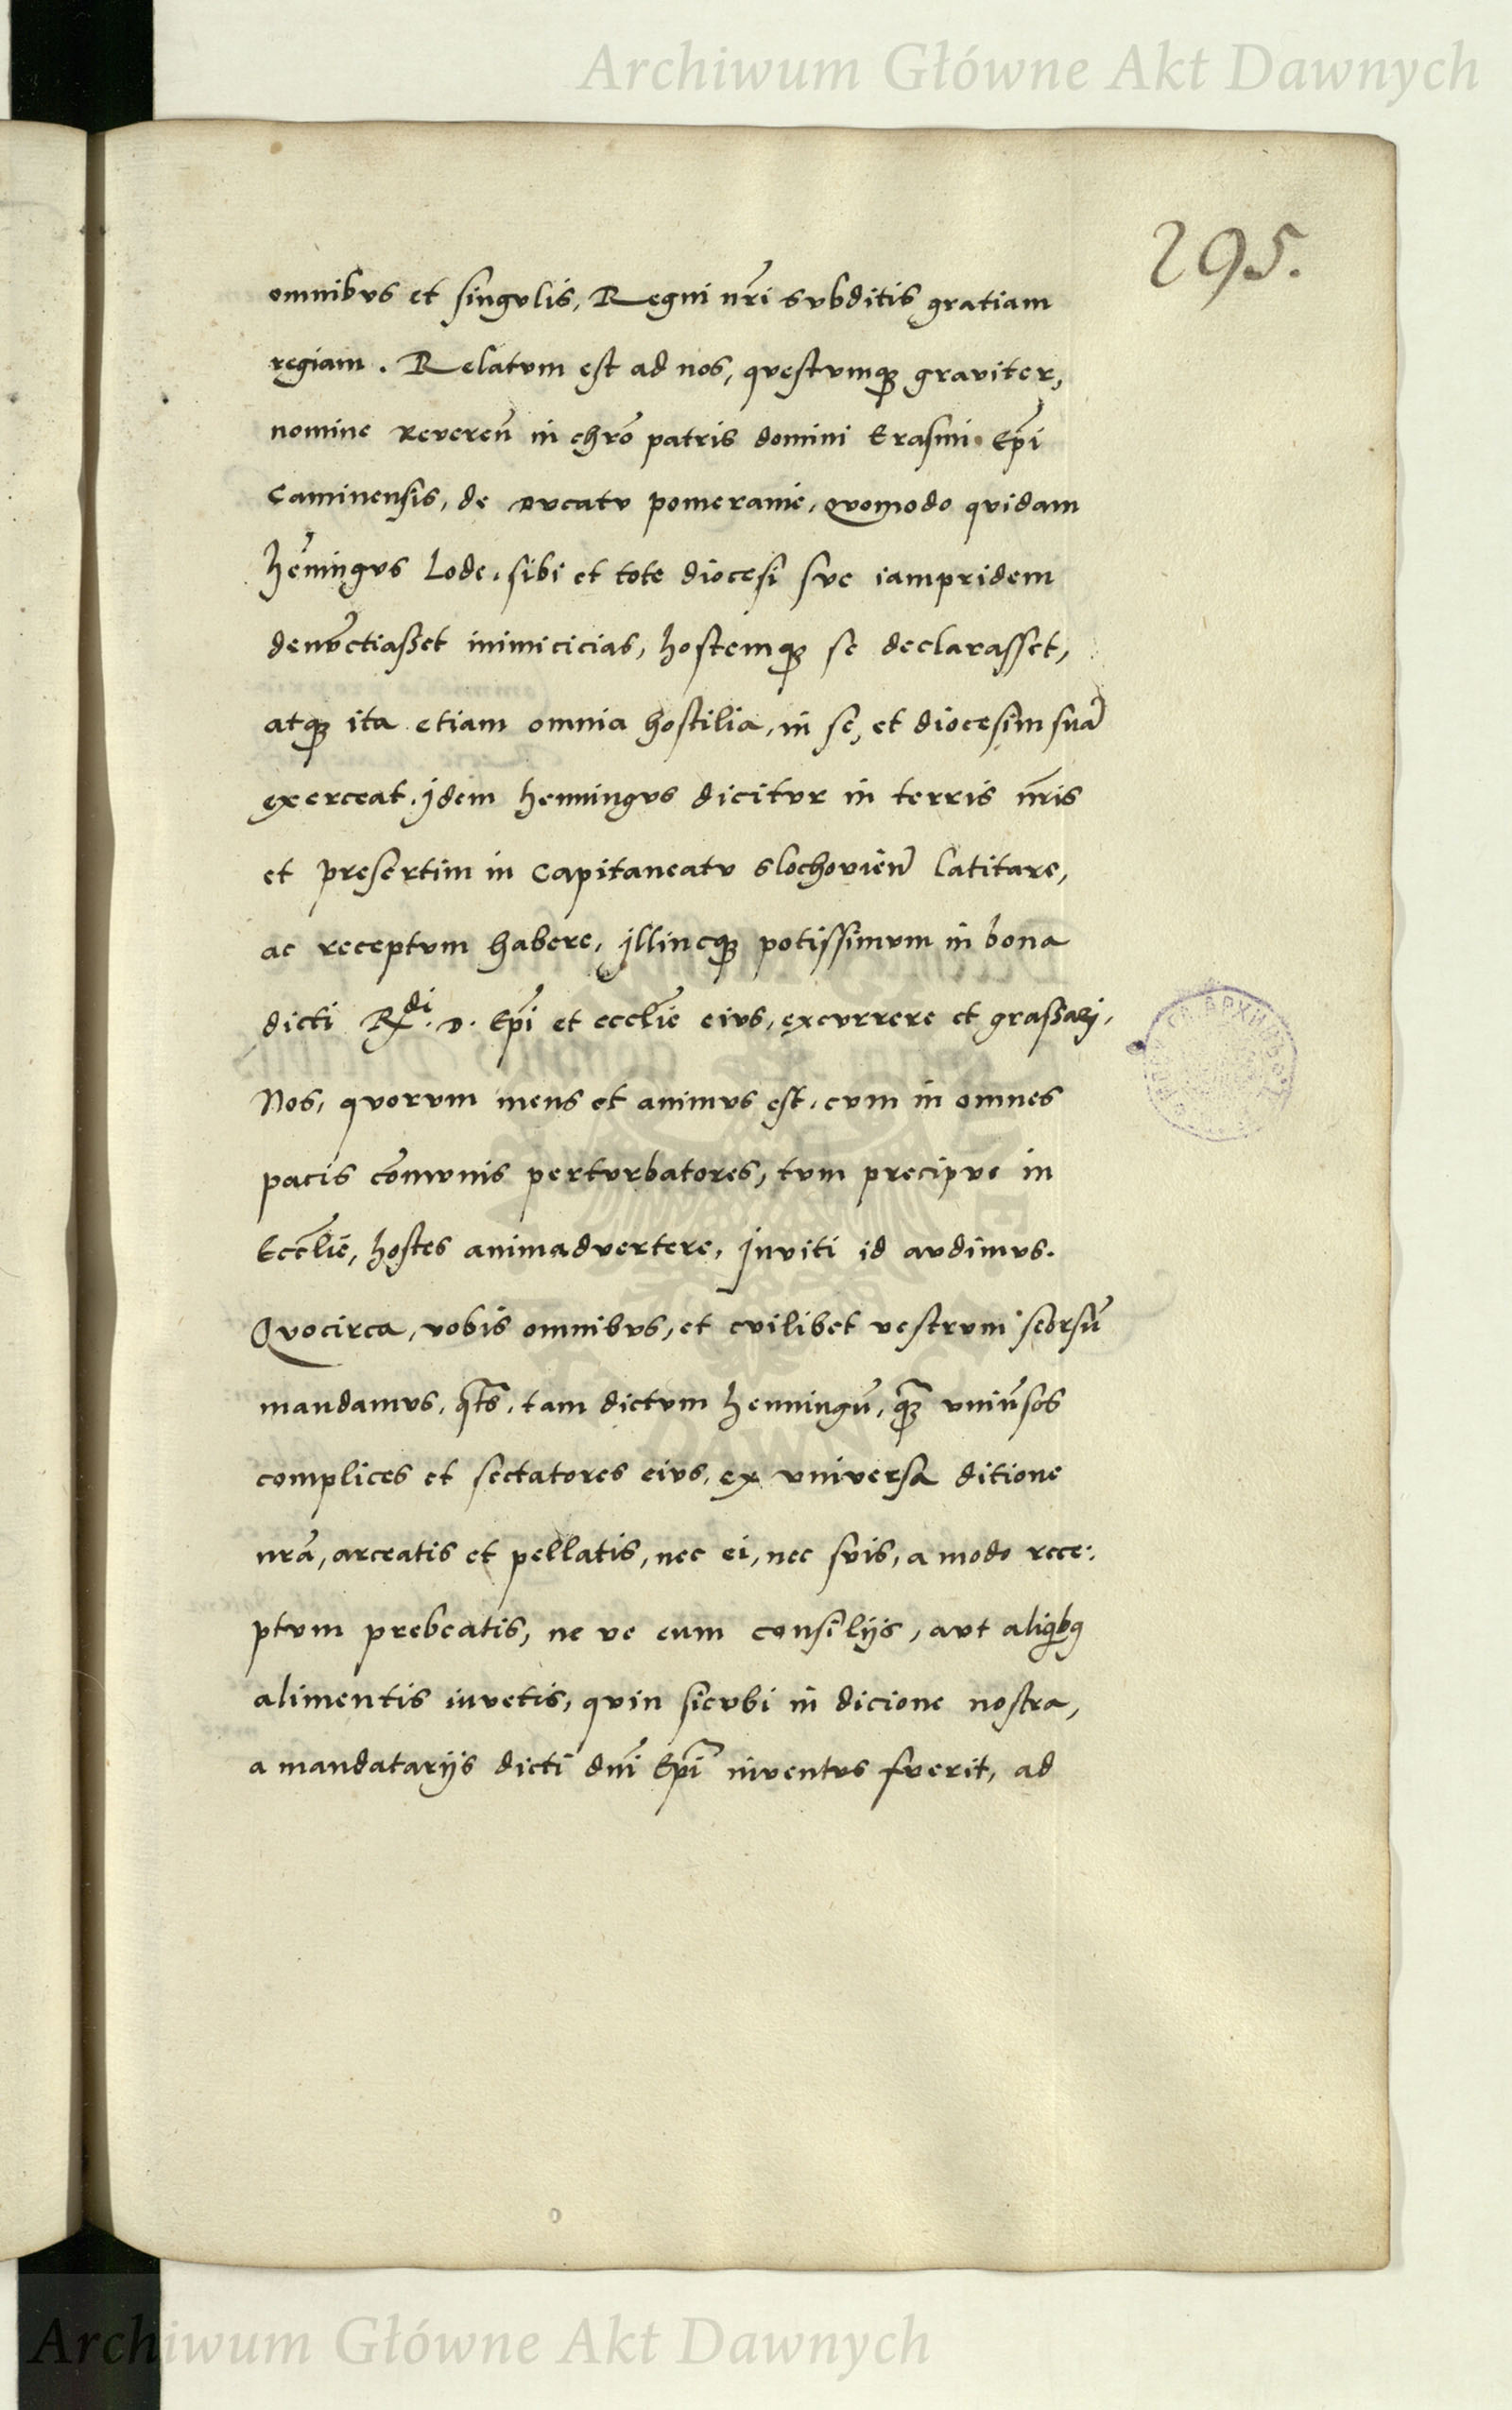 Archiwum Główne Akt Dawnych
295.
omnibus et singulis, Regni nr̃i subditis gratiam
regiam. Relatum est ad nos, questumqꝫ grauiter,
nomine Reuereñ in chrõ patris domini Erasmi Ep̃i
Caminensis, de Ducatu pomeranie, quomodo quidam
hẽningus Lode, sibi et tote diocesi sue iampridem
denũctiasset inimicicias, hostemqꝫ se declarasset,
atqꝫ ita etiam omnia hostilia, in se, et diocesim suã
exerceat, jdem henningus dicitur in terris nr̃is
et presertim in Capitaneatu slochouieñ latitare,
ac receptum habere, jllincqꝫ potissimum in bona
dicti Rdi. D. Ep̃i et eccl̃ie eius, excurrere et grassarj,
Nos, quorum mens et animus est, cum in omnes
pacis cõmunis perturbatores, tum precipue in
Eccl̃ie, hostes animaduertere, jnuiti id audimus.
Quocirca, uobis omnibus, et cuilibet uestrum seorsũ
mandamus, qt̃s, tam dictum henningũ, qꝫ̃ uniũsos
complices et sectatores eius, ex uniuersa ditione
nrã, arceatis et pellatis, nec ei, nec suis, a modo rece:
ptum prebeatis, ne ue eum consilijs, aut aliqbꝫ
alimentis iuuetis, quin sicubi in dicione nostra,
a mandatarijs dicti dnĩ Ep̃i inuentus fuerit, ad
Archiwum Główne Akt Dawnych